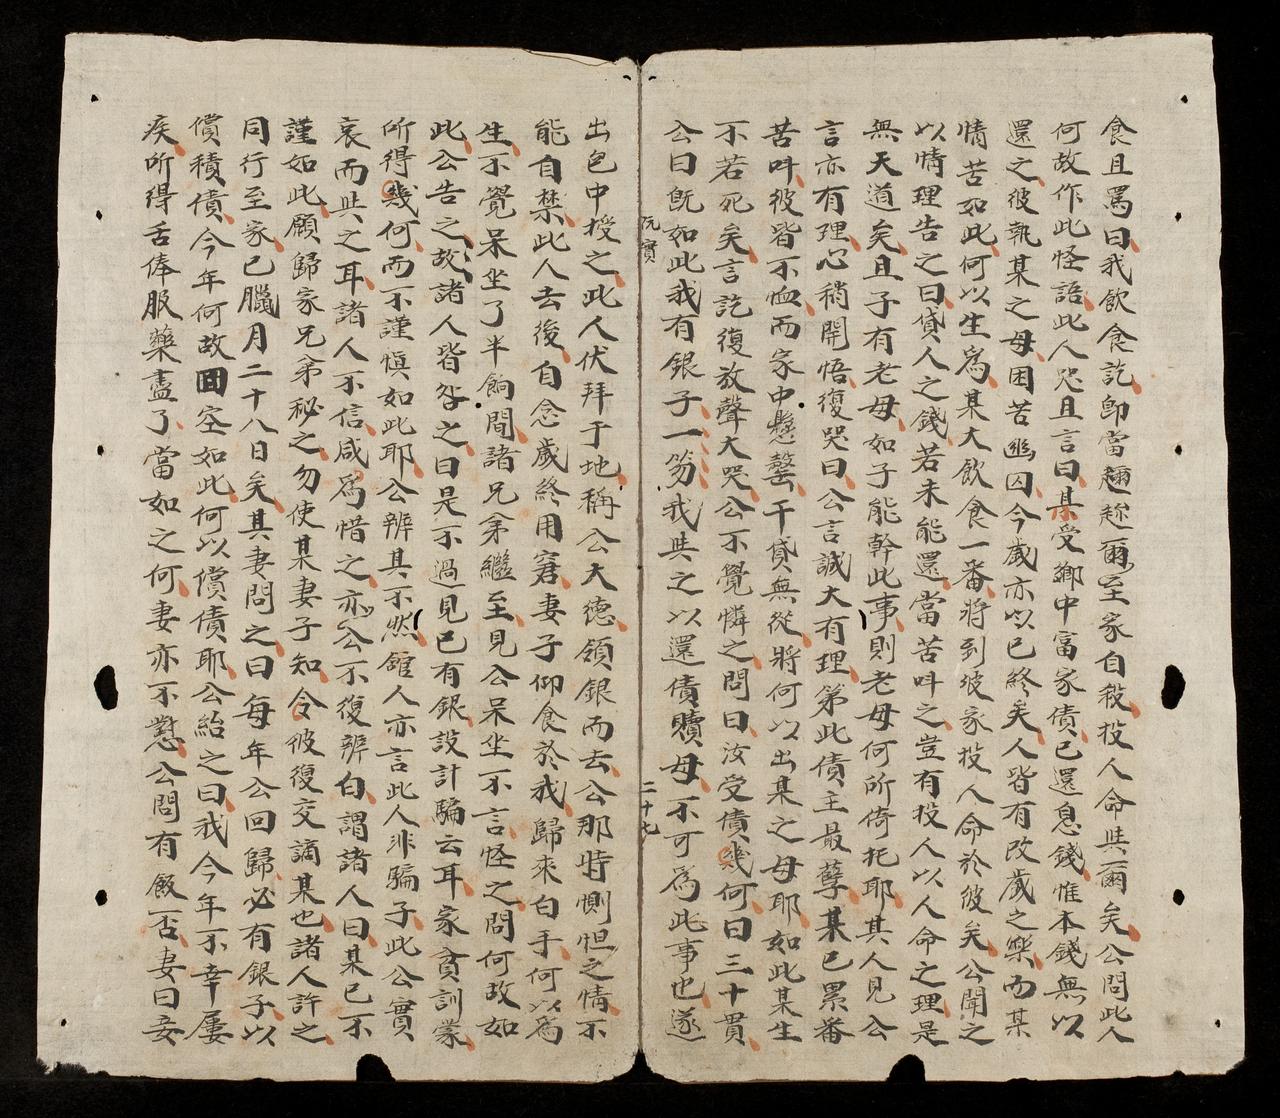 食且罵曰我飲食訖卽當趰趂爾至家自殺投人命與爾矣公問此人
何故作此怪語此人哭且言曰某受鄉中富家債已還息錢惟本錢無以
還之彼執某之母困苦幽囚今歲亦以已終矣人皆有改歲之樂而某
情苦如此何以生爲某大飲食一番將到坡家投人命於彼矣公聞之
以情理告之曰貸人之錢若未能還當苦叫之豈有投人以人命之理是
無天道矣且子有老母如子能幹此事則老母何所倚托耶其人見公
言亦有理心稍開悟復哭曰公言誠大有理第此債主最孽某已累番
苦叫彼皆不恤而家中懸罄干貸無從將何以出某之母耶如此某生
不若死矣言訖復放聲大哭公不覺憐之問曰汝受債幾何曰三十貫
公曰旣如此我有銀子一笏我與之以還債贖母不可爲此事也遂
阮實
二十七
出包中授之此人伏拜于地稱公大德領銀而去公那時惻怛之情不
能自禁此人去後自念歲終用窘妻子仰食於我歸來白手何以爲
生不覺呆坐了半餉間諸兄弟繼至見公呆坐不言怪之問何故如
此公告之故諸人皆咎之曰是不過見已有銀設計騙云耳家貧訓蒙
所得幾何而不謹愼如此耶公辨其不然館人亦言此人非騙子此公實
哀而與之耳諸人不信咸爲惜之亦公不復辨白謂諸人曰某已不
謹如此願歸家兄弟秘之勿使某妻子知令彼復交謫某也諸人許之
同行至家已臘月二十八日矣其妻問之曰每年公回歸必有銀子以
償積債今年何故囬空如此何以償債耶公紿之曰我今年不幸屢
疾所得舌俸服藥盡了當如之何妻亦不懟公問有飯否妻曰妾